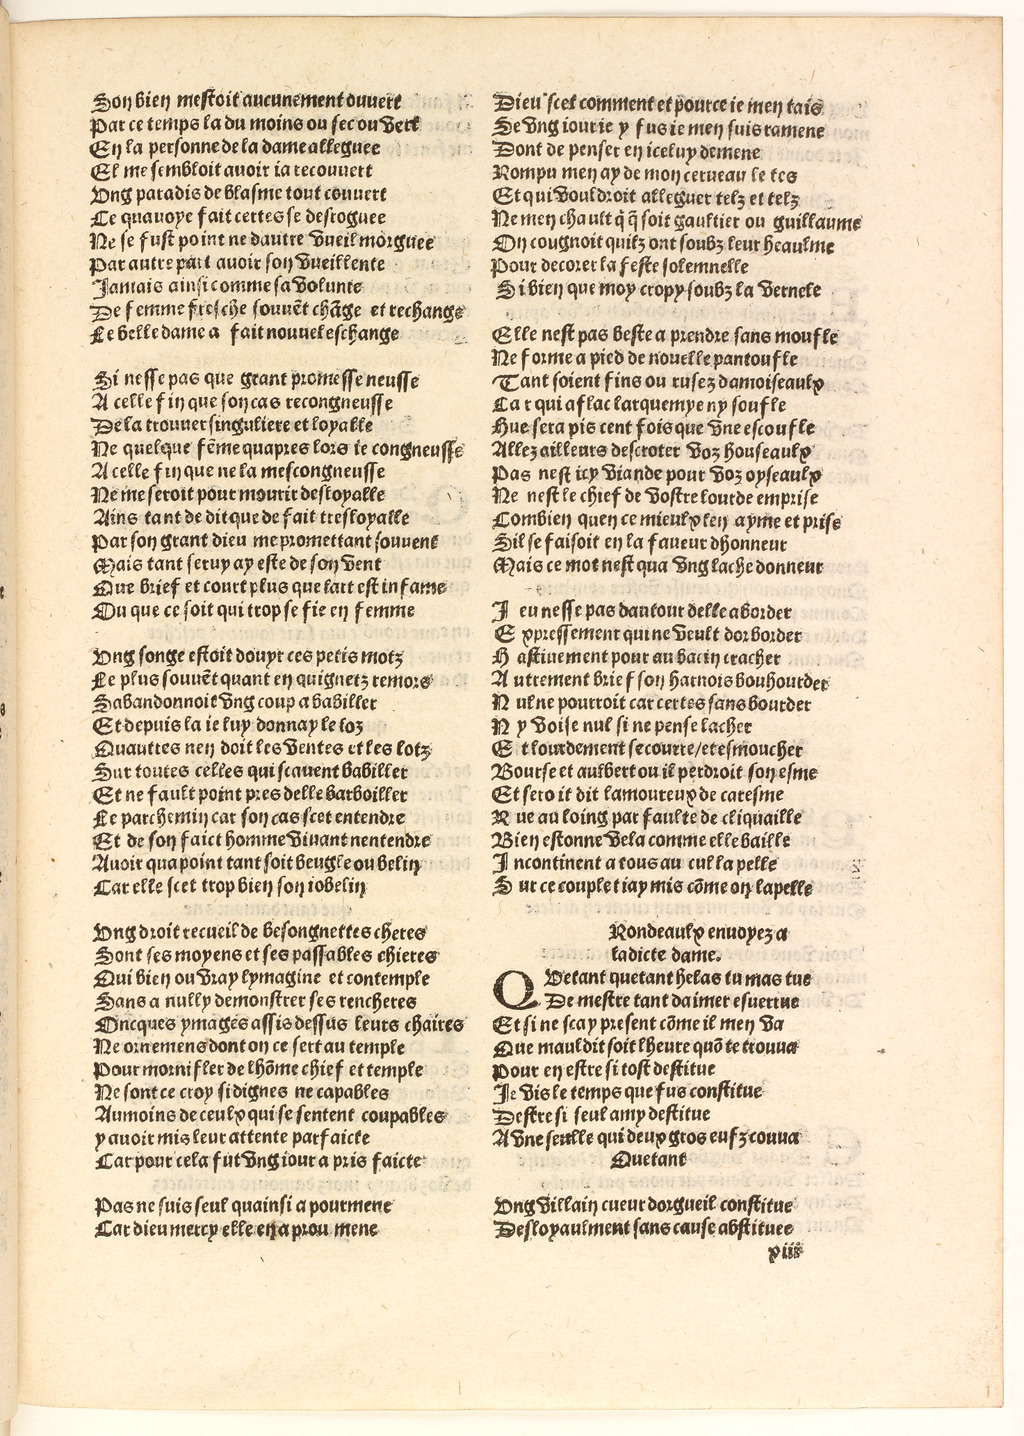 Son bien mestoit aucunement ouuert
Par ce temps la du moins ou sec ou vert
En la personne de la dame alleguee
El me sembloit auoir ia recouuert
Ung paradis de blasme tout couuert
Ce quauoye fait certes se desroguee
Ne se fust point ne dautre vueil morguee
Par autre part auoir son vueillente
Jamais ainsi comme sa volunte
De femme fresche souuēt chāge et rechange
Le belle dame a fait nouuel eschange
Si nesse pas que grant promesse neusse
A celle fin que son cas recongneusse
De la trouuer singuliere et loyalle
Ne quelque fēme quapres lors ie congneusse
A celle fin que ne la mescongneusse
Ne me seroit pour mourir desloyalle
Ains tant de dit que de fait tresloyalle
Par son grant dieu me promettant souuent
Mais tant seruy ay este de son vent
Que brief et court plus que lart est infame
Ou que ce soit qui trop se fie en femme
Ung songe estoit douyr ces petis motz
Le plus souuēt quant en quignetz remors
Sabandonnoit ung coup a babiller
Et depuis la ie luy donnay le loz
Quautres nen doit les ventes et les lotz
Sur toutes celles qui scauent babiller
Et ne fault point pres delle barboiller
Le parchemin car son cas scet entendre
Et de son faict homme viuant nentendre
Auoir qua point tant soit beugle ou belin
Car elle scet trop bien son iobelin
Ung droit recueil de besongnettes cheres
Sont ses moyens et ses passables chieres
Qui bien ou vray lymagine et contemple
Sans a nully demonstrer ses rencheres
Oncques ymages assis dessus leurs chaires
Ne ornemens dont on ce sert au temple
Pour mornifler de lhōme chief et temple
Ne sont ce croy si dignes ne capables
Aumoins de ceulx qui se sentent coupables
y auoir mis leur attente parfaicte
Car pour cela fut ung iour a pris faicte
Pas ne suis seul quainsi a pourmene
Car dieu mercy elle en a prou mene
Dieu scet comment et pource ie men tais
Se ung iour ie y fus ie men suis ramene
Dont de penser en iceluy demene
Rompu men ay de mon cerueau le tes
Et qui vouldroit alleguer telz et telz
Ne men chault q̄ q̄ soit gaultier ou guillaume
On cougnoit quilz ont soubz leur heaulme
Pour decorer la feste solemnelle
Si bien que moy cropy soubz la vernele
Elle nest pas beste a prendre sans moufle
Ne forme a pied de nouelle pantoufle
Tant soient fins ou rusez damoiseaulx
Car qui a flac larquemye ny soufle
Hue sera pis cent fois que vne escoufle
Allez ailleurs descroter voz houseaulx
Pas nest icy viande pour voz oyseaulx
Ne nest le chief de vostre lourde emprise
Combien quen ce mieulx len ayme et prise
Sil se faisoit en la faueur dhonneur
Mais ce mot nest qua ung lache donneur
J eu nesse pas dautour delle aborder
E xpressement qui ne veult dorborder
H astiuement pour au bacin cracher
A utrement brief son harnois bouhourder
N ul ne pourroit car certes sans bourder
N y voise nul si ne pense lacher
E t lourdement secourre/et esmoucher
Bourse et aulbert ou il perdroit son esme
Et seroit dit lamoureux de caresme
R ue au loing par faulte de cliquaille
Bien estonne vela comme elle baille
J ncontinent a tous au cul la pelle
S ur ce couplet iay mis cōme on lapelle
Rondeaulx enuoyez a
ladicte dame.
QUetant quetant helas tu mas tue
De mestre tant daimer esuertue
Et si ne scay present cōme il men va
Que mauldit soit lheure quō te trouua
Pour en estre si tost destitue
Je vis le temps que fus constitue
Destre si seul amy destitue
A vne seulle qui deux gros eufz couua
Quetant
Ung villain cueur dorgueil constitue
Desloyaulment sans cause abstituee
xiii